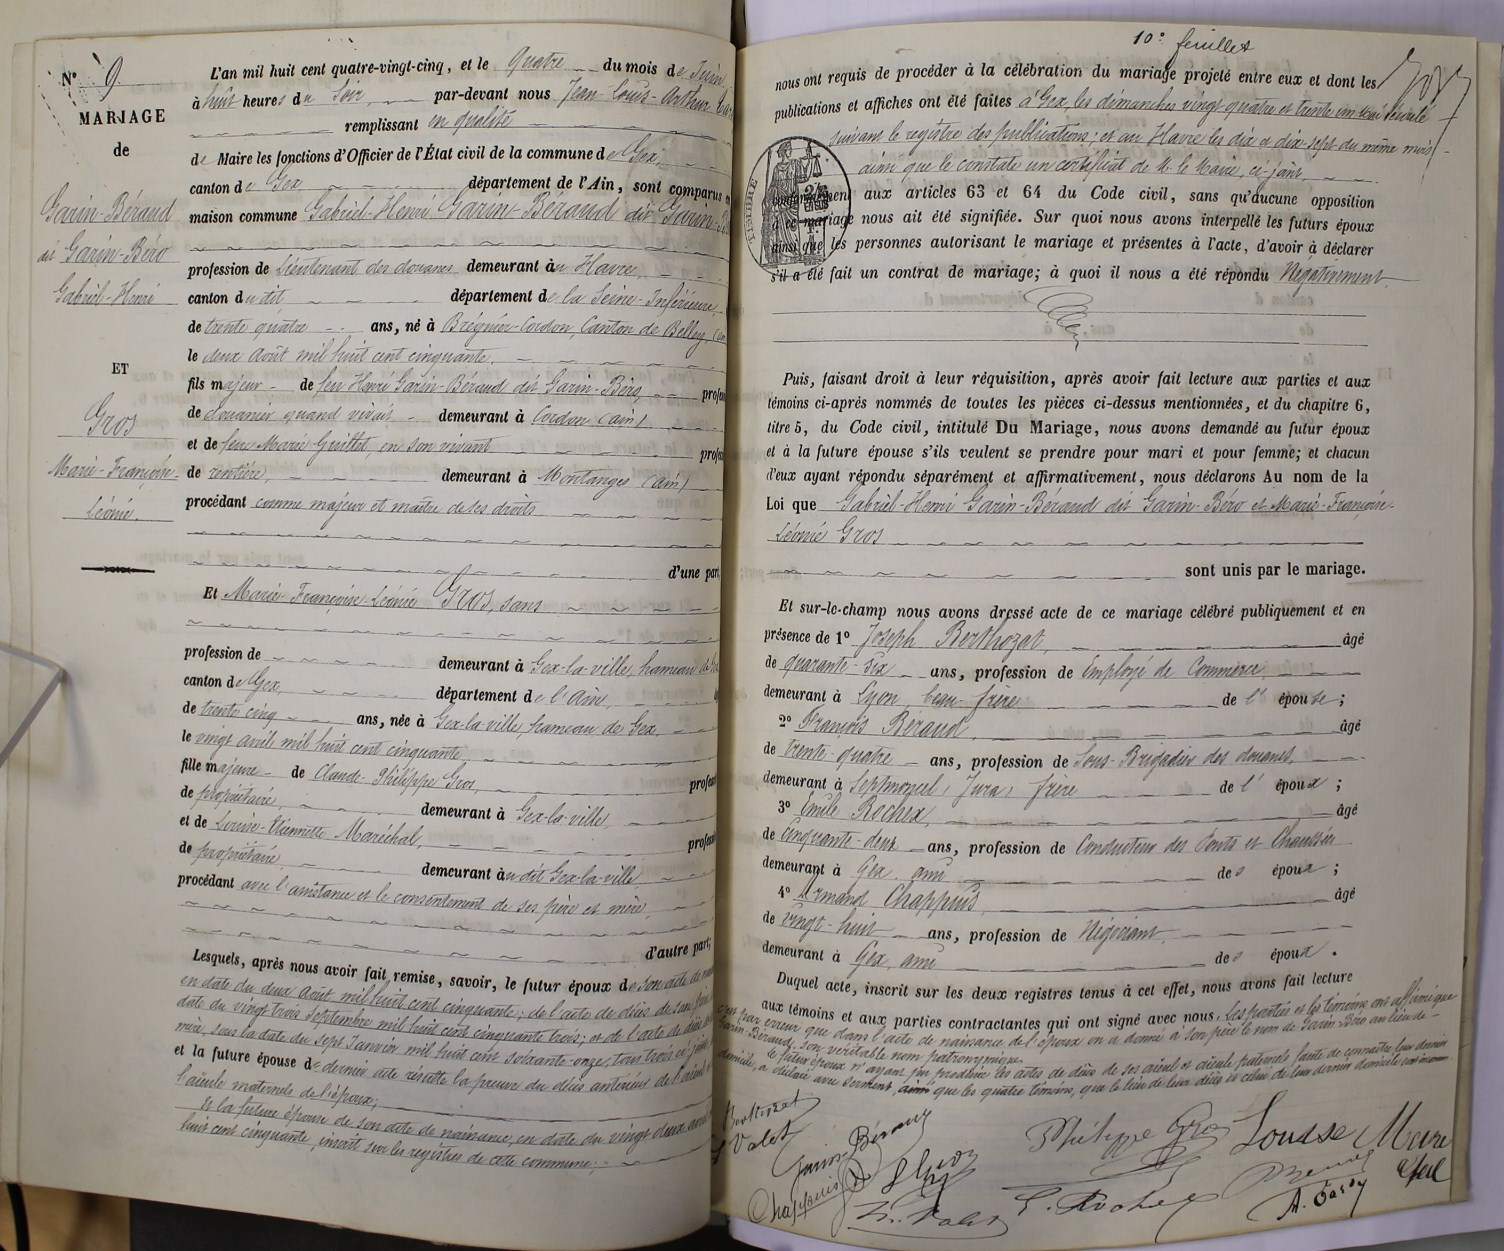 N° 9
MARIAGE
de
Garin-Béraud
dit Garin-Béro
Gabriel-Henri
ET
Gros
Marie-Françoise-
Léonie.
L'an mil huit cent quatre-vingt-cinq, et le quatre du mois de Juin
à huit heures du Soir, par-devant nous Jean-Louis-Arthur
remplissant en qualité
de Maire les fonctions d'Officier de l'État civil de la commune de Gex,
canton de Gex, département de l'Ain, sont comparus en
maison commune Gabriel-Henri Garin-Béraud dit Garin-
profession de Lieutenant des douanes demeurant au Havre,
canton dudit département de la Seine-Inférieure,
de trente quatre ans, né à Brégnier-Cordon, Canton de Belley,
le deux août mil huit cent cinquante,
fils majeur de feu Henri Garin-Béraud dit Garin-Béro,
de douanier quand vivait demeurant à Cordon (Ain)
et de feu Marie Guillet, en son vivant
de rentière, demeurant à Montanges (Ain)
procédant comme majeur et maître de ses droits
d'une part,
Et Marie-Françoise-Léonie Gros, sans
profession de demeurant à Gex-la-ville, hameau de
canton de Gex, département de l'Ain,
de trente cinq ans, née à Gex-la-ville hameau de Gex,
le vingt avril mil huit cent cinquante
fille majeure de Claude-Philippe Gros,
de propriétaire, demeurant à Gex-la-ville,
et de Louise-Etiennette Maréchal,
de propriétaire demeurant audit Gex-la-ville,
procédant avec l'assistance et le consentement de ses père et mère,
d'autre part;
Lesquels, après nous avoir fait remise, savoir, le futur époux de son acte de
en date du deux août mil huit cent cinquante; de l'acte de décès de son père
date du vingt trois septembre mil huit cent cinquante trois; et de l'acte de décès
mère, sous la date du sept Janvier mil huit cent soixante-onze, tous trois ci-joints
et la future épouse de dernier acte résulte la preuve du décès antérieur de l'aïeul
l'aïeule maternels de l'époux;
Et la future épouse de son acte de naissance, en date du vingt deux avril
huit cent cinquante, inscrit sur les registres de cette commune;
10e feuillet
nous ont requis de procéder à la célébration du mariage projeté entre eux et dont les
publications et affiches ont été faites à Gex, les dimanches vingt-quatre et trente un mai
suivant le registre des publications; et au Havre les dix et dix-sept du même mois
ainsi que le constate un certificat de M. le Maire, ci-joint,
conformément aux articles 63 et 64 du Code civil, sans qu'aucune opposition
à ce mariage nous ait été signifiée. Sur quoi nous avons interpellé les futurs époux
ainsi que les personnes autorisant le mariage et présentes à l'acte, d'avoir à déclarer
s'il a été fait un contrat de mariage; à quoi il nous a été répondu Négativement
TIMBRE
Puis, faisant droit à leur réquisition, après avoir fait lecture aux parties et aux
témoins ci-après nommés de toutes les pièces ci-dessus mentionnées, et du chapitre 6,
titre 5, du Code civil, intitulé Du Mariage, nous avons demandé au futur époux
et à la future épouse s'ils veulent se prendre pour mari et pour femme; et chacun
d'eux ayant répondu séparément et affirmativement, nous déclarons Au nom de la
Loi que Gabriel-Henri Garin-Béraud dit Garin-Béro et Marie-Françoise-
Léonie Gros
sont unis par le mariage.
Et sur-le-champ nous avons dressé acte de ce mariage célébré publiquement et en
présence de 1° Joseph Berthozat, âgé
de quarante-six ans, profession de Employé de Commerce,
demeurant à Lyon, beau-frère de l'épouse;
2° François Béraud, âgé
de trente-quatre ans, profession de Sous-Brigadier des douanes,
demeurant à Septmoncel, Jura, frère de l'époux;
3° Emile Rochex, âgé
de Cinquante-deux ans, profession de Conducteur des Ponts et Chaussées
demeurant à Gex, ami des époux;
4° Armand Chappuis, âgé
de vingt-huit ans, profession de Négociant,
demeurant à Gex, ami des époux.
Duquel acte, inscrit sur les deux registres tenus à cet effet, nous avons fait lecture
aux témoins et aux parties contractantes qui ont signé avec nous. Les parties et les témoins ont affirmé que
c'est par erreur que dans l'acte de naissance de l'époux on a donné à son père le nom de Garin-Béro au lieu de
Garin-Béraud, son véritable nom patronymique.
le futur époux n'ayant pu produire les actes de décès de ses aïeul et aïeule paternels faute de connaître leur dernier
domicile, a déclaré avec serment, ainsi que les quatre témoins, que le lieu de leur décès et celui de leur dernier domicile sont inconnus
Berthozat
Garin-Béraud
L Gros
Philippe Gros
Louise Mare
chal
Chappuis
E. Rochex